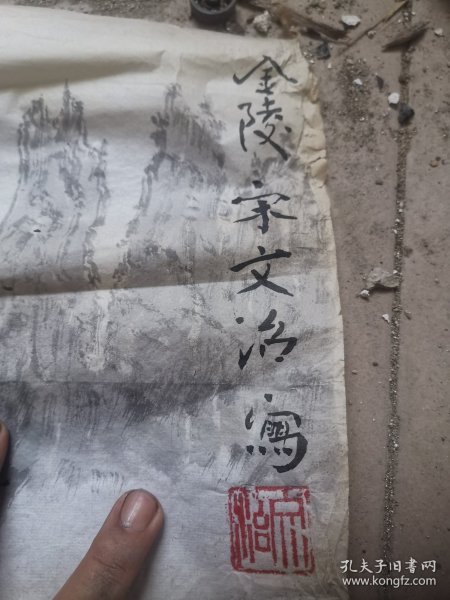 金陵宋文治寫
孔夫子旧书网
www.kongfz.com